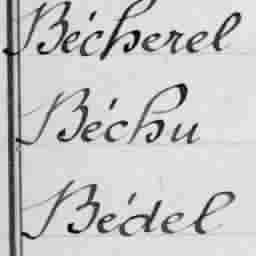 Bécherel
Béchu
Bédel